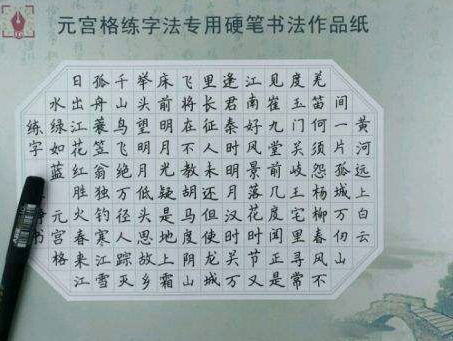 元宫格练字法专用硬笔书法作品纸
黄河远上白云
间一片孤城万仞山
羌笛何须怨杨柳春风不
度玉门关岐王宅里寻常
见崔九堂前几度闻正是
江南好风景落花时节又
逢君秦时明月汉时关万
里长征人未还但使龙城
飞将在不教胡马度阴山
床前明月光疑是地上霜
举头望明月低头思故乡
千山鸟飞绝万径人踪灭
孤舟蓑笠翁独钓寒江雪
日出江花红胜火春来江
水绿如蓝元宫格
练字书